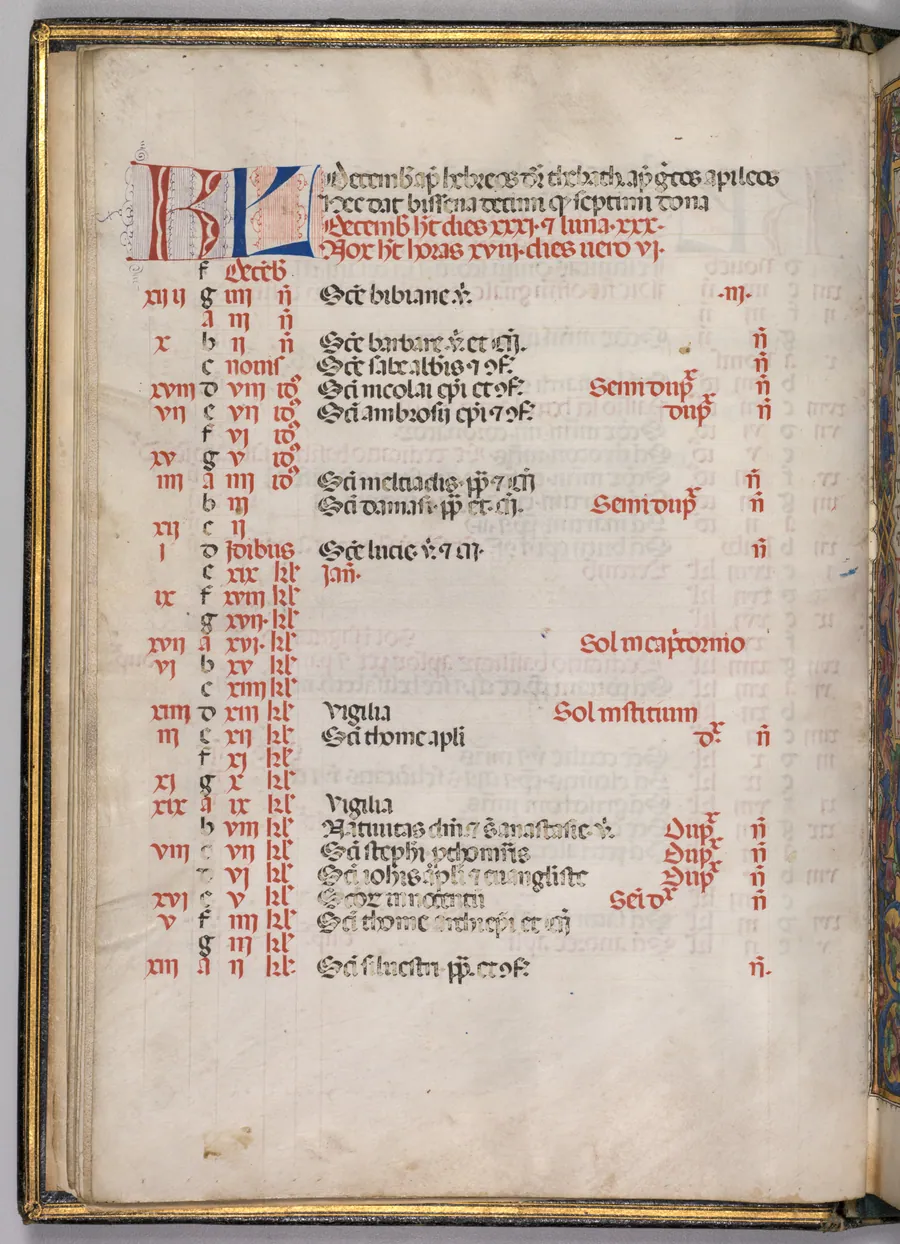 KL Decemb ap hebreos dr thebeth. ap grecos apileos
Hec dat bissena decimi qz septimi dona
Decemb ht dies xxxj. ⁊ luna. xxx.
Nox ht horas xviij. dies uero vj.
f Deceb
xiij g iiij n Sce bibiane v. .ix.
A iij n
x b ij n Sce barbare. v. et m. n
c nonis Sci sabe abbis ⁊ ↄf. n
xviij d viij id Sci nicolai epi et ↄf. Semidup n
vij e vij id Sci ambrosij epi ⁊ ↄf. dup n
f vj id
xv g v id
iiij A iiij id Sci melciadis. pp. ⁊ m n
b iij Sci damasi. pp. et. ↄf. Semidup n
xij c ij
j d Idibus Sce lucie. v. ⁊ m. n
e xix kl Jan.
ix f xviij kl
g xvij. kl
xvij A xvj. kl Sol in capricornio
vj b xv kl
c xiiij kl
xiiij d xiij kl Vigilia Sol institium
iij e xij kl Sci thome apli d. n
f xj kl
xj g x kl
xix A ix kl Vigilia
b viij kl Natiuitas dni. ⁊ s. anastasie. v. Dup n
viij c vij kl Sci stephi. pthomris Dup n
d vj kl Sci iohis apli ⁊ euangliste Dup n
xvj e v kl Scor innocentu Semid n
v f iiij kl Sci thome archiepi et m
g iij kl
xiij A ij kl. Sci siluestri. pp. et ↄf. n.